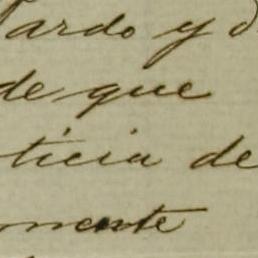 ardo y d
de que
ticia de
mente